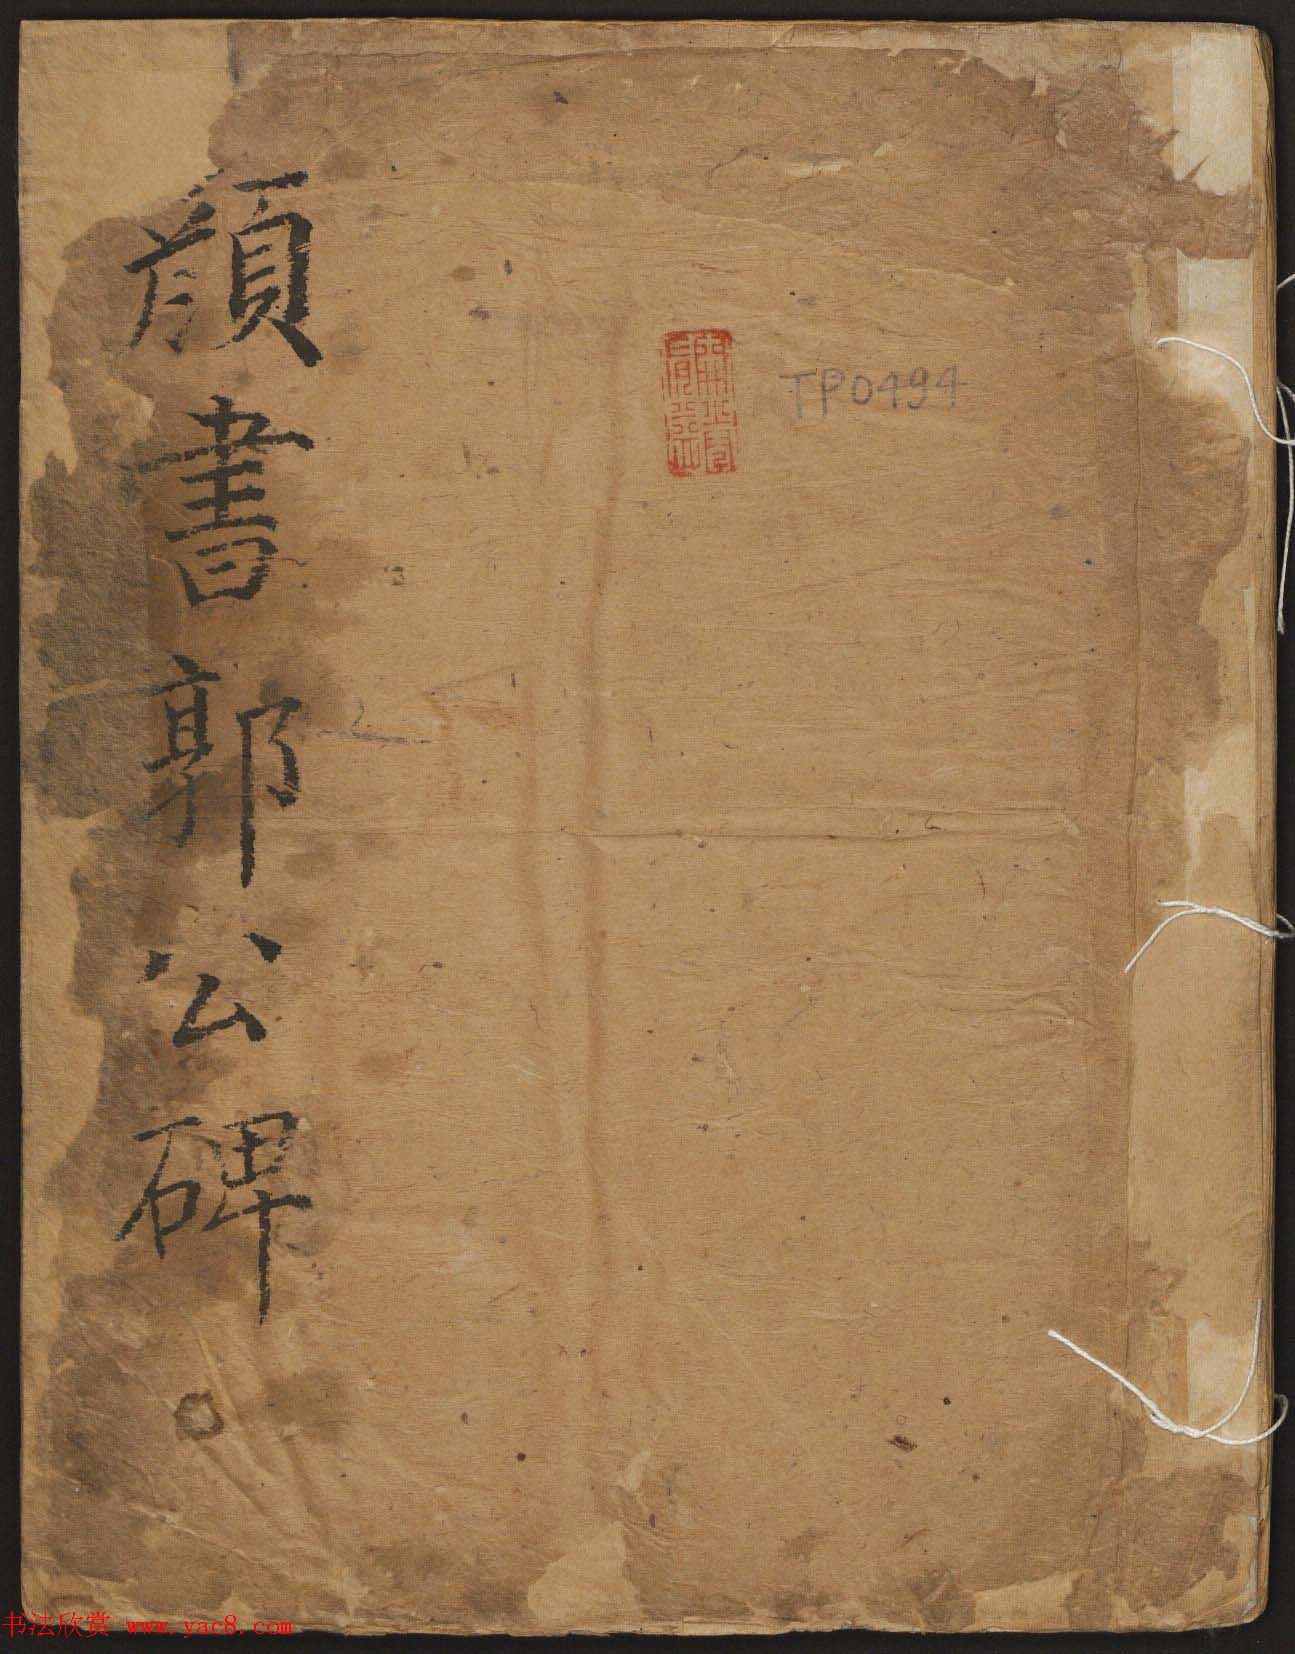 顔書郭公碑
TP0494
书法欣赏 www.yac8.com